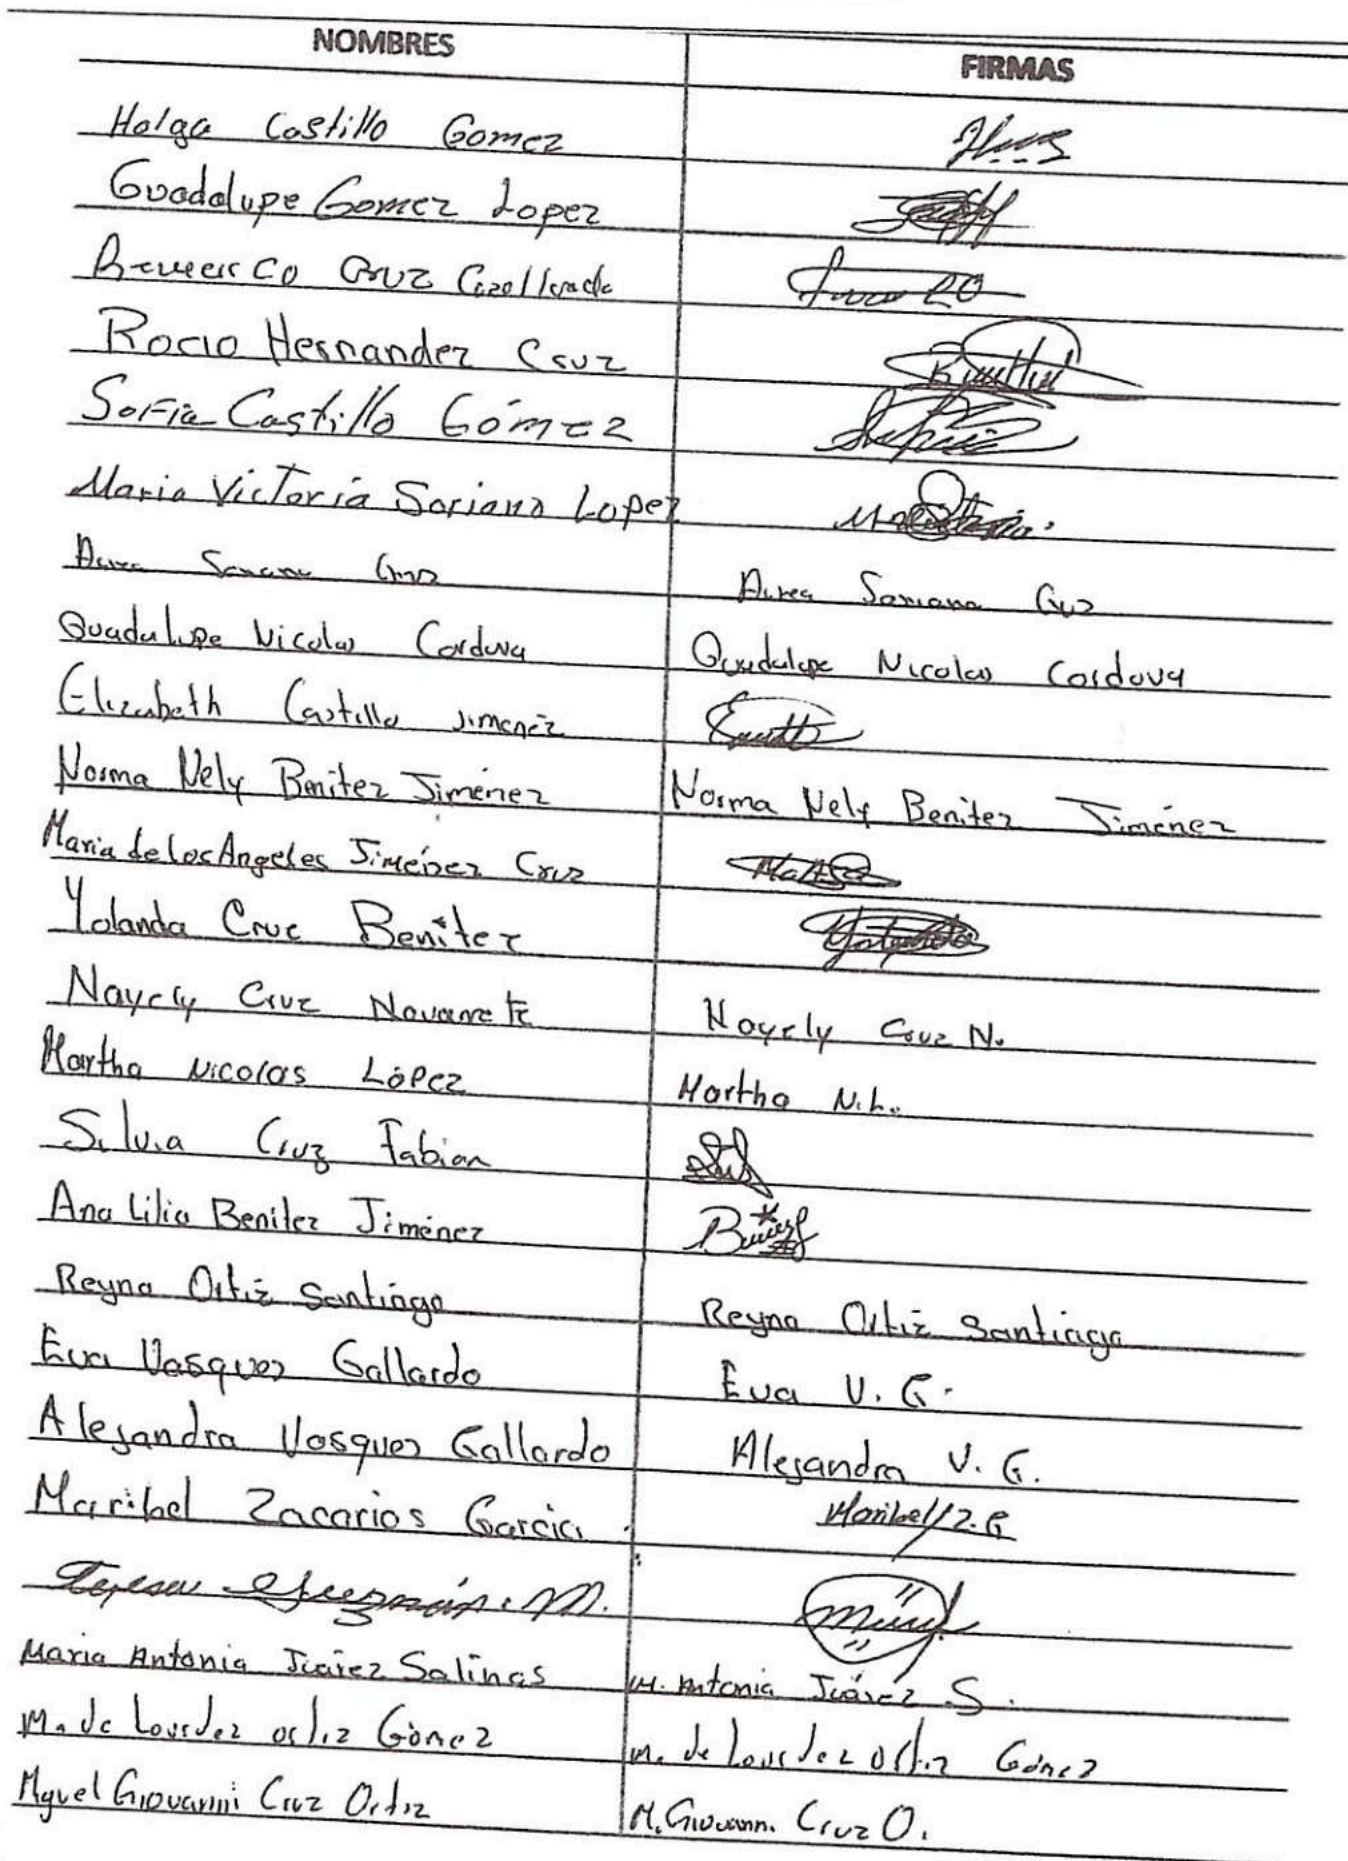 NOMBRES FIRMAS
Holga Castillo Gomez
Guadalupe Gomez Lopez
CO Cruz
Rocio Hernandez Cruz
Sofia Castillo Gómez
Maria Victoria Soriano Lopez
Aurea Soriano Cruz Aurea Soriano Cruz
Guadalupe Nicolas Cordova Guadalupe Nicolas Cordova
Elizabeth Castillo Jimenez
Norma Nely Benitez Jiménez Norma Nely Benitez Jiménez
Maria de los Angeles Jiménez Cruz
Yolanda Cruz Benitez
Nayely Cruz Navarrete Nayely Cruz N.
Martha Nicolas López Martha N.L.
Silvia Cruz Fabian
Ana Lilia Benitez Jiménez
Reyna Ortiz Santiago Reyna Ortiz Santiago
Eva Vasquez Gallardo Eva V. G.
Alejandra Vasquez Gallardo Alejandra V. G.
Maribel Zacarias Garcia Maribel Z. G
Teresa Guzmán. M.
Maria Antonia Juárez Salinas M. Antonia Juárez S.
M. de Lourdez ortiz Gómez M. de Lourdez Ortiz Gómez
Miguel Giovanni Cruz Ortiz M. Giovann. Cruz O.